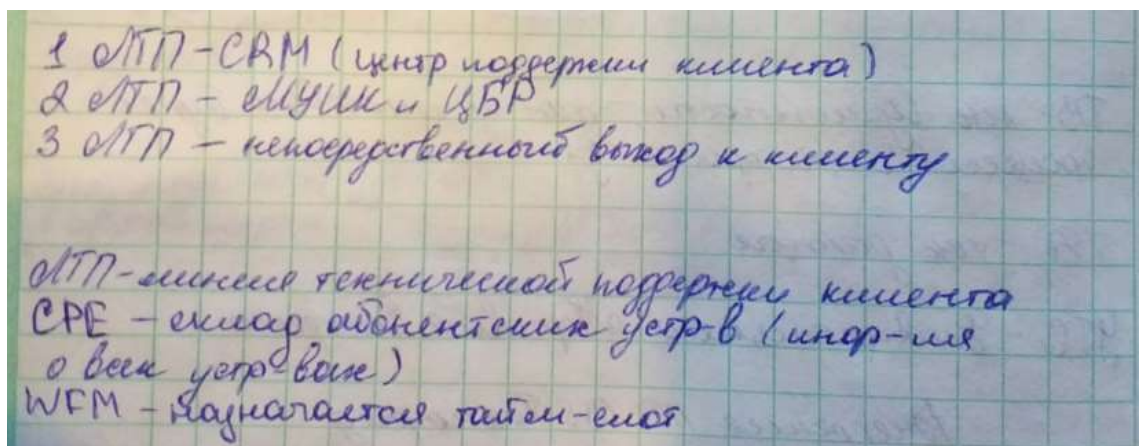 1 ЛТП-CRM (центр поддержки клиента)
2 ЛТП - МУИК и ЦБР
3 ЛТП - непосредственный выход к клиенту
ЛТП-линия технической поддержки клиента
CPE - склад абонентских устр-в (инфор-ия
о всех устр-вах)
WFM - назначается тайм-слот